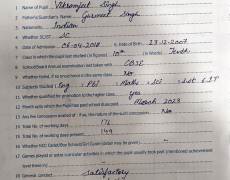 1 Name of Pupil Vikramjeet Singh
2 Father's/Guardian's Name Gurmeet Singh
3 Nationality Indian
4 Whether SC/ST SC
5 Date of Admission 06-04-2018 6 Date of Birth 23-12-2007
7 Class in which the pupil last studied (in figures) 10th (in Words) Tenth
8 School/Board Annual examination last taken with CBSE
9 Whether failed, if so once/twice in the same class No
10 Subjects Studied Eng PBI Maths Sci S.St & IT
11 Whether qualified for promotion to the higher class yes
12 Month upto which the Pupil has paid school dues March 2023
13 Any Fee Concession availed of: if so, the nature of the such concession No
14 Total No. of working days 176
15 Total No. of working days present 149
16 Whether NCC Cadet/Boy Scout/Girl Guide (detail may be given) No
17 Games played or extra curricular activities in which the pupil usually took part (mentioned achievement level there in) No
18 General conduct Satisfactory